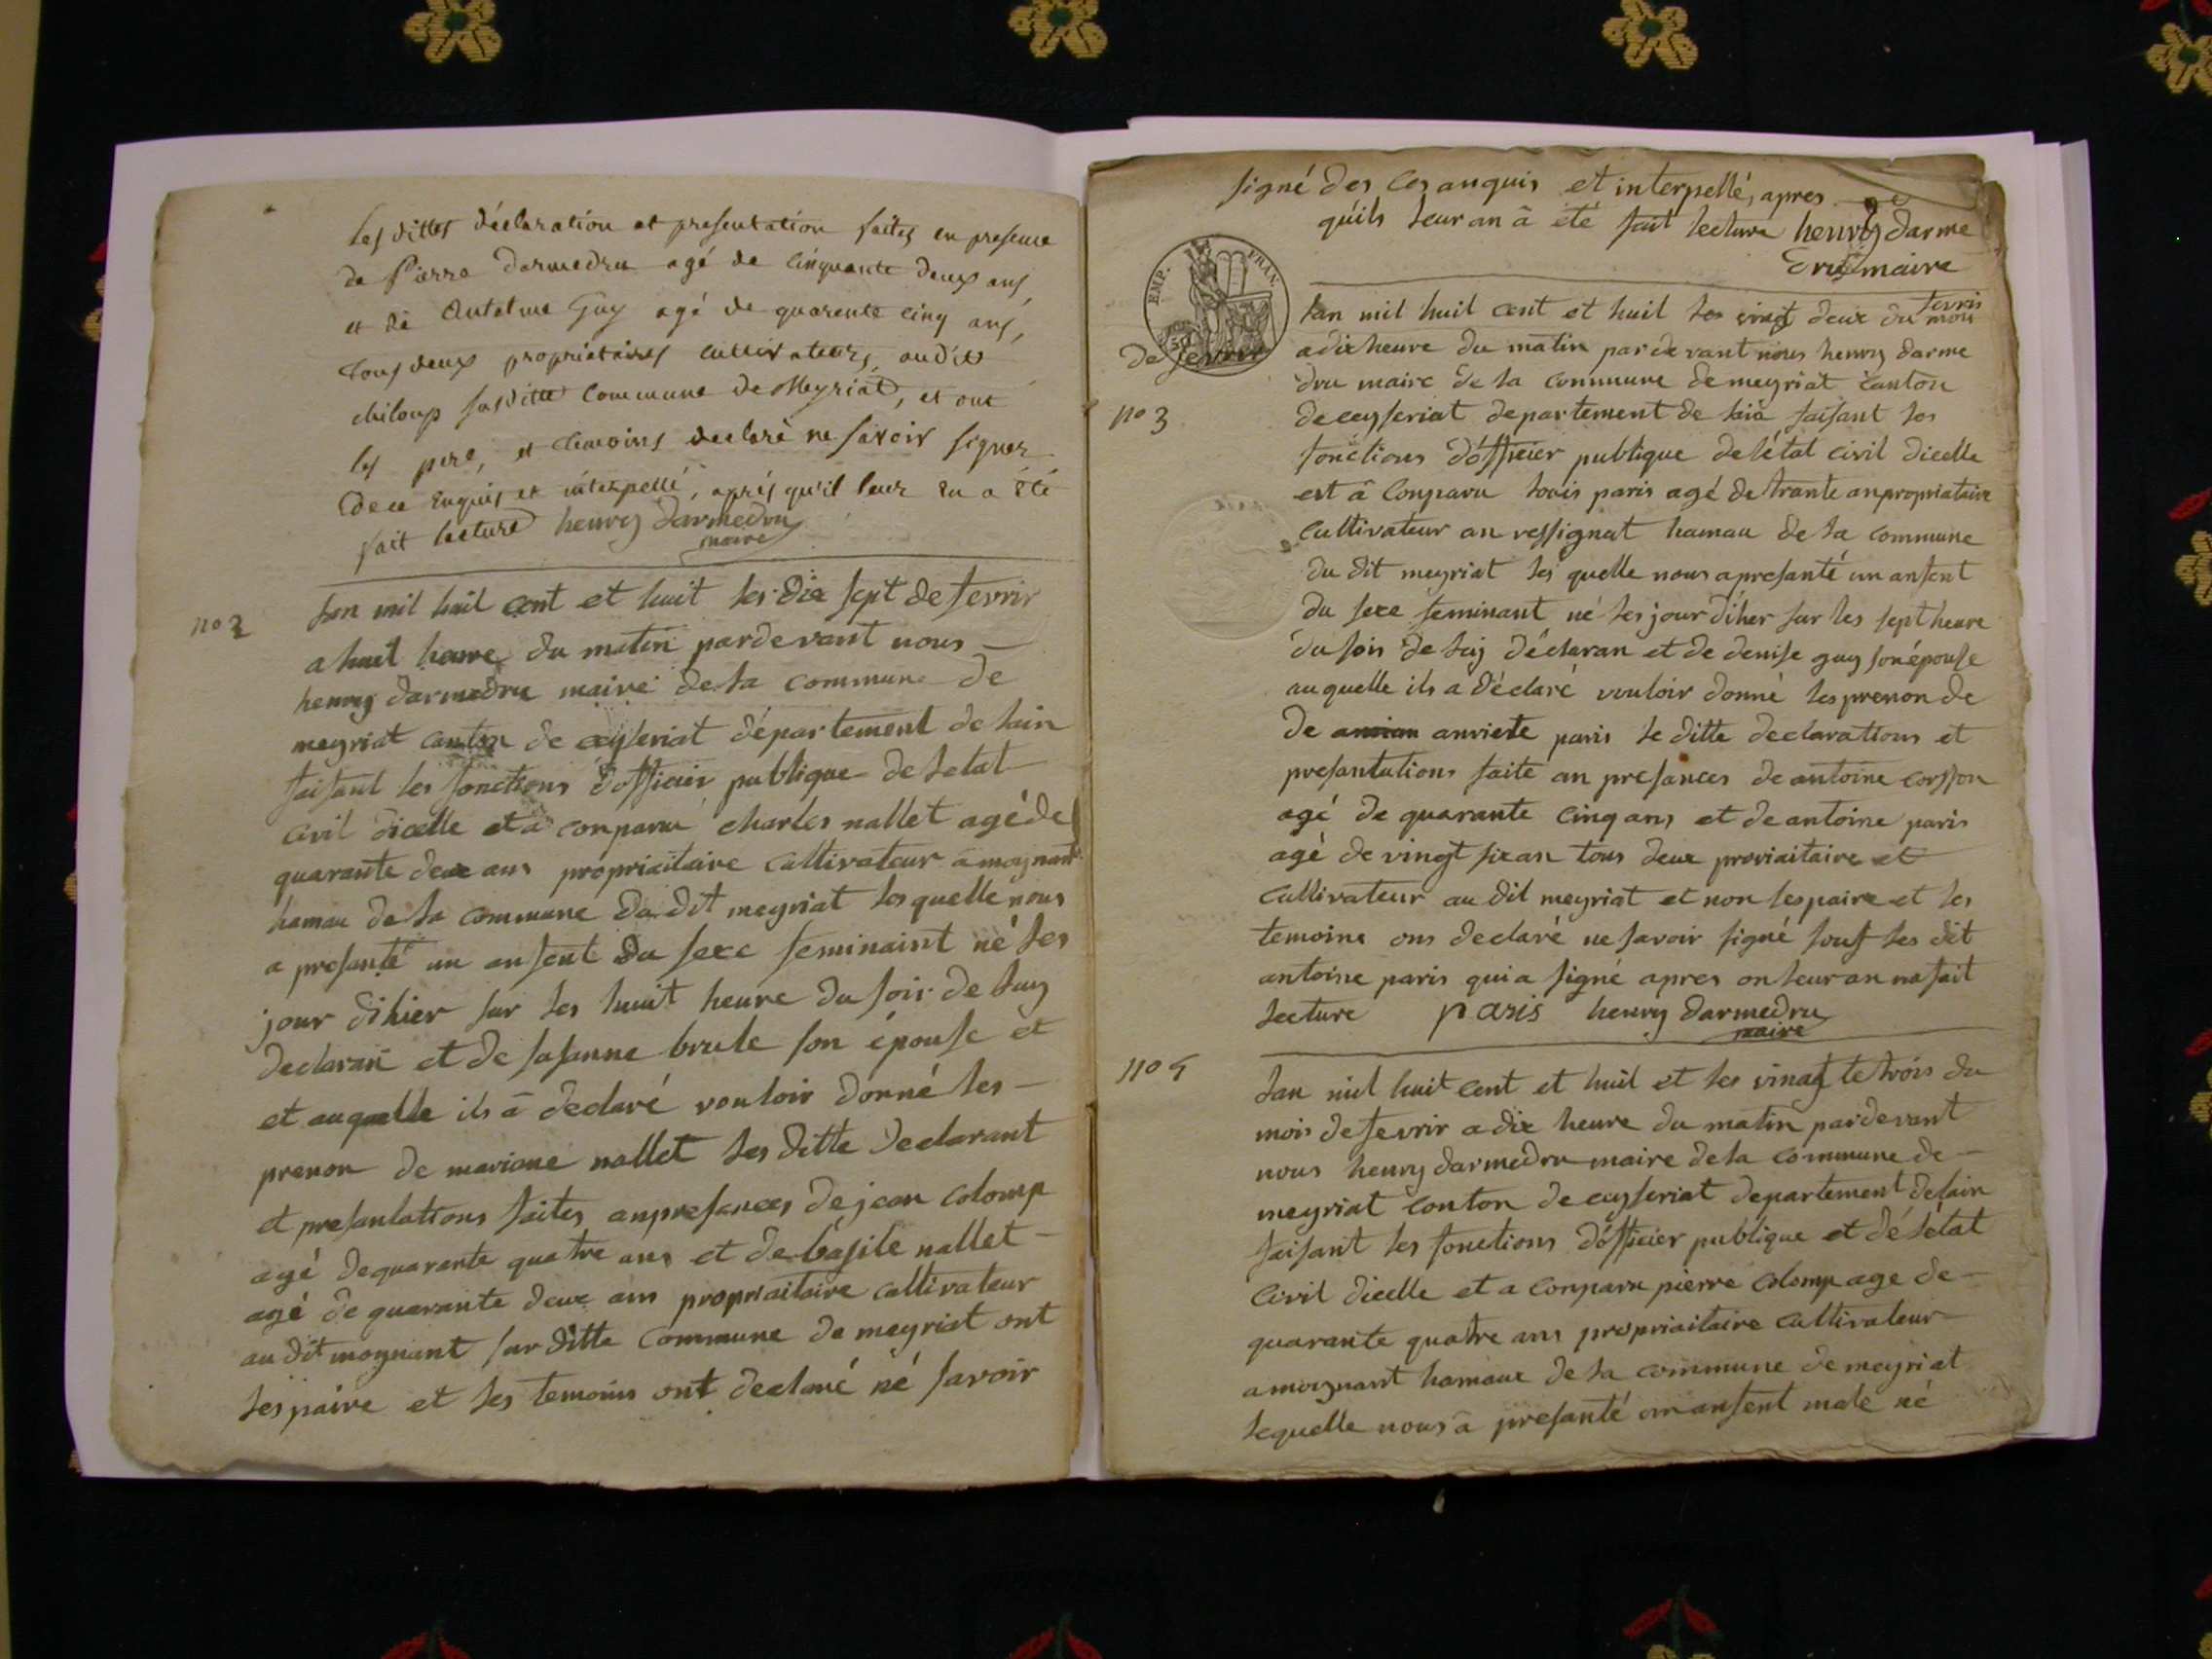 les dittes déclaration et presentation faites en presence
de Pierre Darmedru agé de cinquante deux ans,
et de Antelme Guy agé de quarente cinq ans,
tous deux propriétaires cultivateurs, audit
chiloup susditte Commune de Meyriat, et ont
les pere, et temoins declaré ne savoir signer
de ce enquis et interpellé, après qu'il leur en a été
fait lecture henry darmedru
maire
no 2
lan mil huit cent et huit les dix sept de fevrir
a huit heure du matin pardevant nous
henry darmedru maire de la commune de
meyriat canton de ceyseriat département de lain
faisant les fonctions d'officier publique de letat
civil dicelle et a conparu charles nallet agé de
quarante deux ans propriaitaire cultivateur a moynant
hamau de la commune du dit meyriat lesquelle nous
a presanté un anfent du sexe feminaint né les
jour dihier sur les huit heure du soir de luy
declaran et de susanne brule son épouse et
et auquelle ils a declaré vouloir donné les
prenon de mariane nallet les ditte declarant
et presantations faites anpresances de jean colomp
agé dequarante quatre ans et de basile nallet
agé de quarante deux ans propriaitaire cultivateur
au dit moynant sur ditte commune de meyriat ont
les paire et les temoins ont declaré né savoir
signé des ces anquis et interpellé, apres
quils leur an a été fait lecture henry darme
dru maire
EMP. FRAN.
lan mil huit cent et huit les vingt deux du mois
fevrir
de fevrir
a dix heure du matin pardevant nous henry darme
dru maire de la commune de meyriat canton
no 3
de ceyseriat departement de lain faisant les
fonctions d'officier publique de létat civil dicelle
est a conparu louis paris agé de trante an propriataire
cultivateur an ressignat hamau de la commune
du dit meyriat les quelle nous apresanté un anfent
du sexe feminant né les jour diher sur les sept heure
du soir de luy déclaran et de denise guy son épouse
auquelle ils a déclaré vouloir donné les prenon de
de anriete paris le ditte declarations et
presantations faite an presances de antoine corsson
agé de quarante cinq ans et de antoine paris
agé de vingt six an tous deux proviaitaire et
cultivateur au dit meyriat et non les paire et les
temoins ons declaré ne savoir signé souf les dit
antoine paris qui a signé apres on leur an na fait
lecture paris henry darmedru
maire
no 4
lan mil huit cent et huit et les vingt te trois du
mois de fevrir a dix heure du matin pardevant
nous henry darmedru maire de la commune de
meyriat conton de ceyseriat departement delain
faisant les fonctions d'officier publique et dé létat
civil dicelle et a conparu pierre colomp age de
quarante quatre ans propriaitaire cultivateur
a moynant hamaux de la commune de meyriat
lequelle nous a presanté un anfent male né